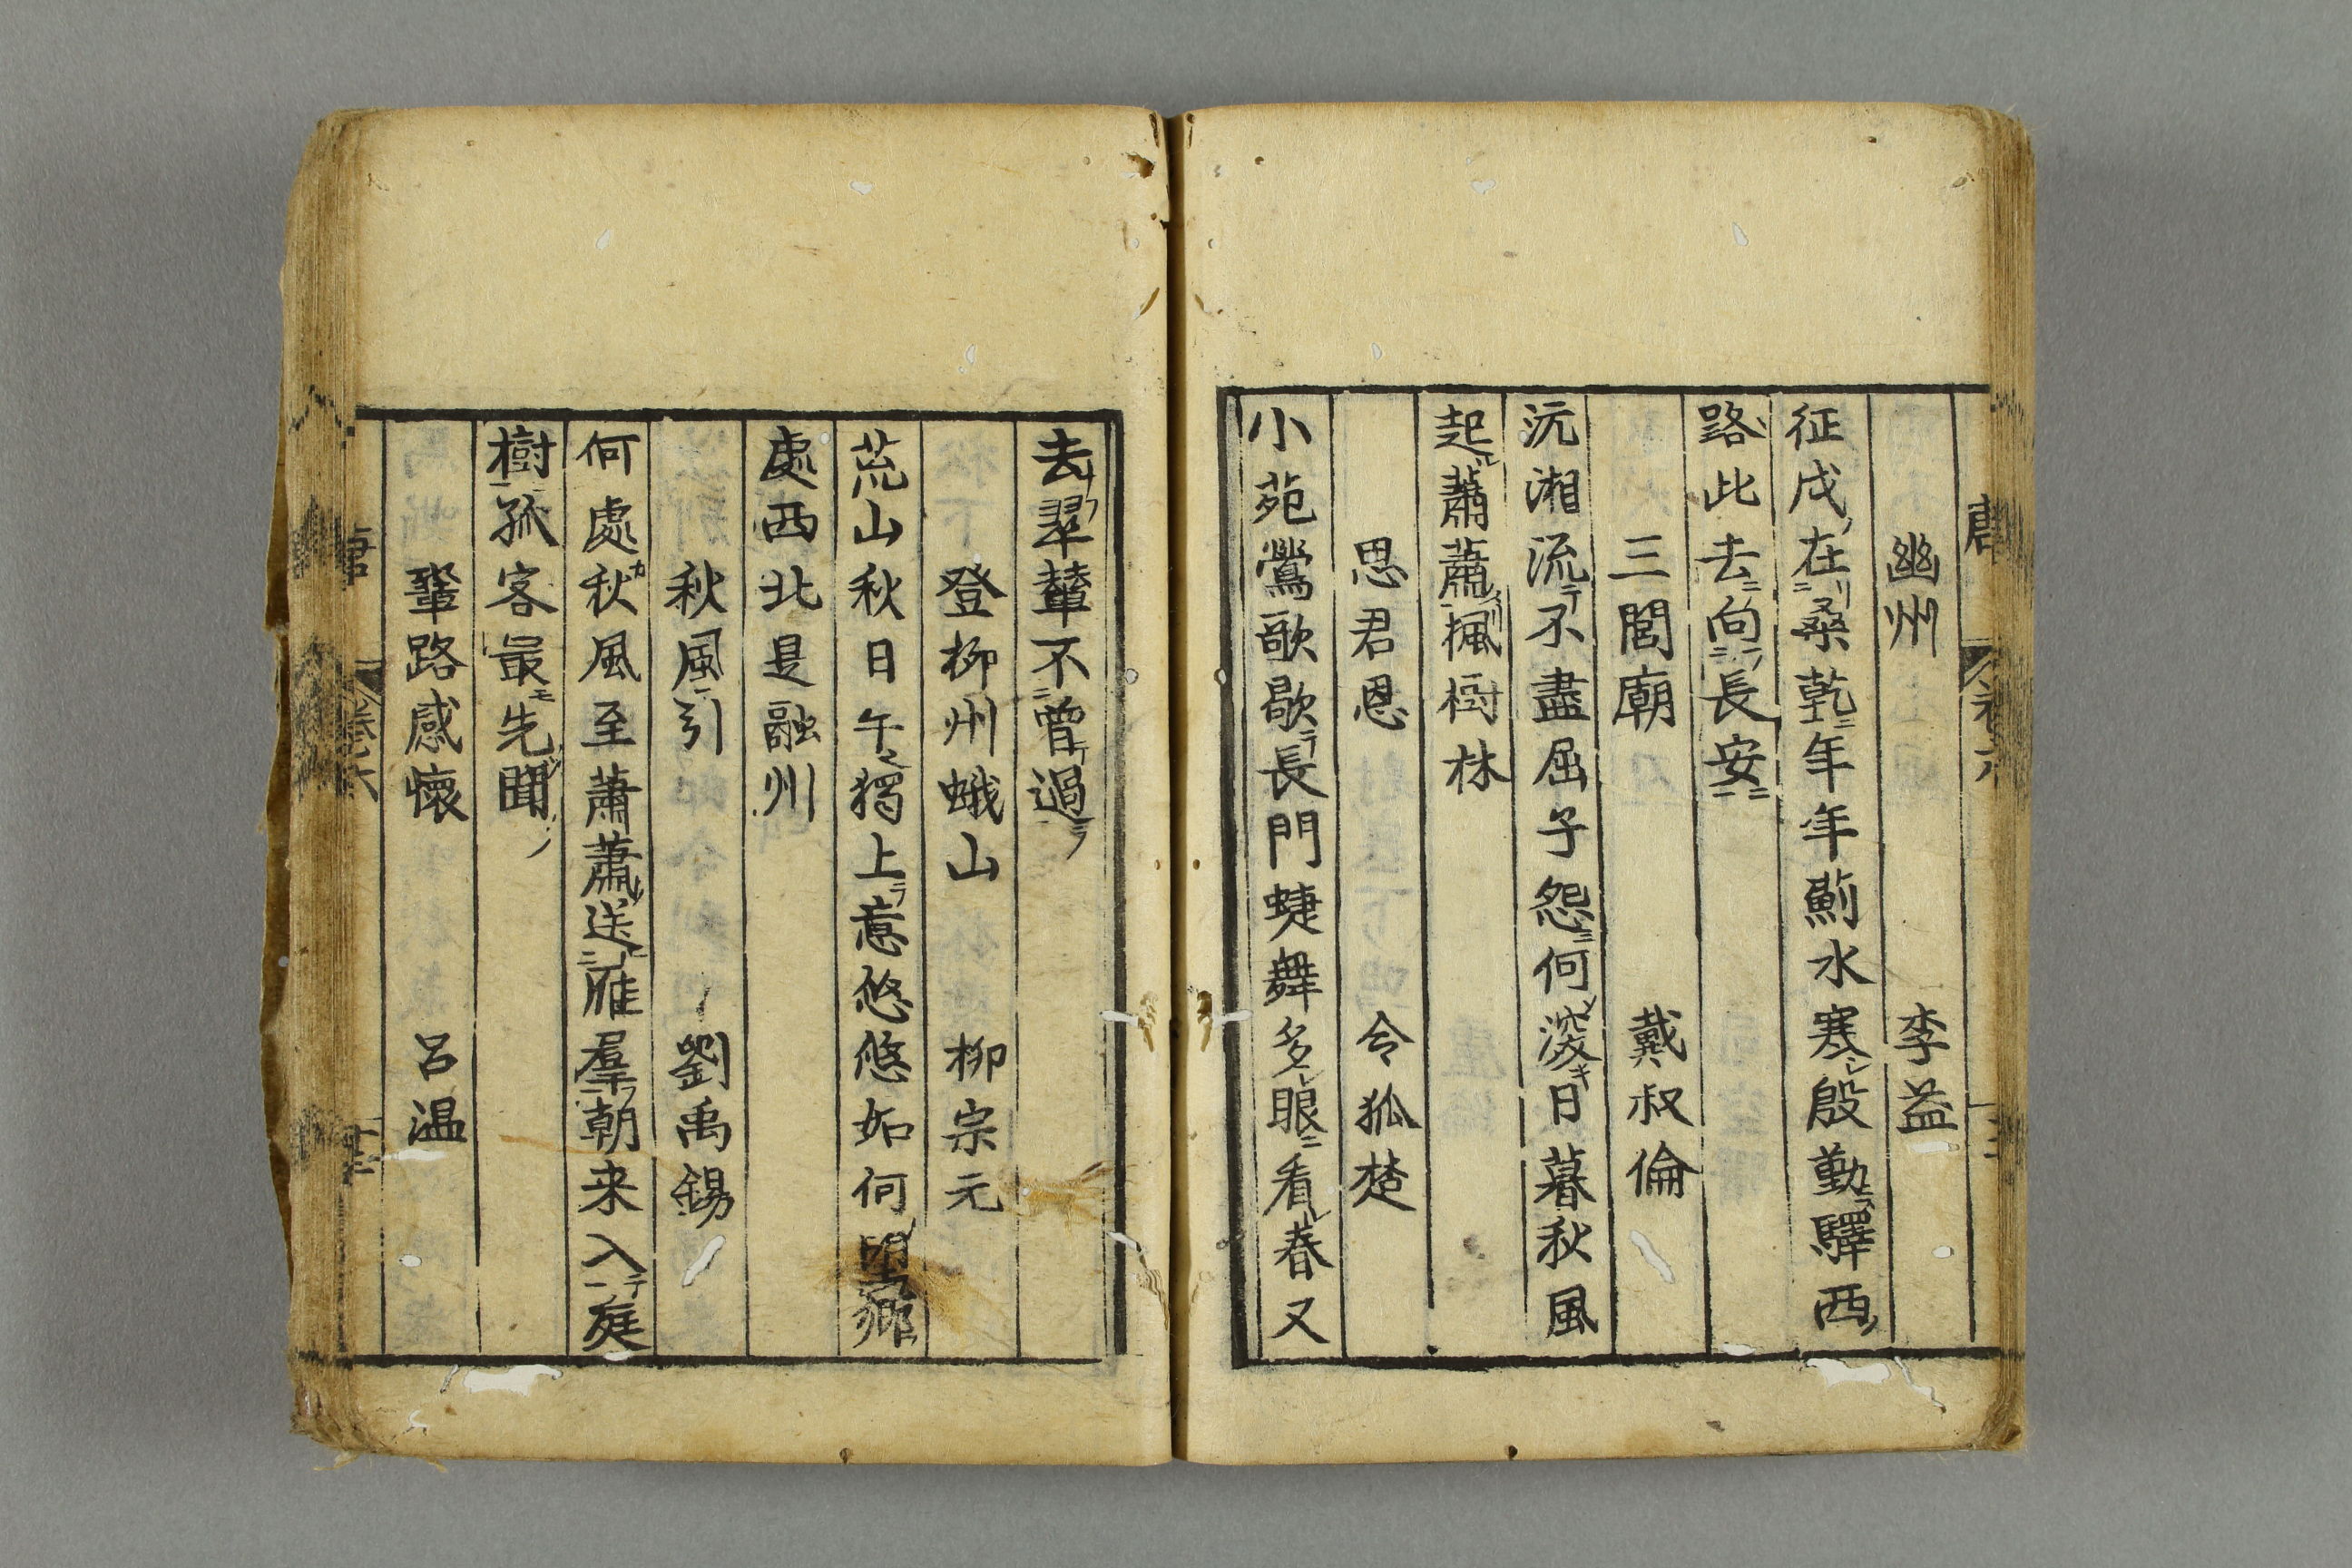 幽州 李益
征戍在桑乾年年薊水寒殷勤驛西
路此去向長安
三閭廟 戴叔倫
沅湘流不盡屈子怨何深日暮秋風
起蕭蕭楓樹林
思君恩 令狐楚
小苑鶯歌歇長門蜨舞多眼看春又
去翠輦不曾過
登柳州蛾山 柳宗元
荒山秋日午獨上意悠悠如何望鄉
處西北是融州
秋風引 劉禹錫
何處秋風至蕭蕭送雁羣朝来入庭
樹孤客最先聞
鞏路感懷 呂温
唐 卷六